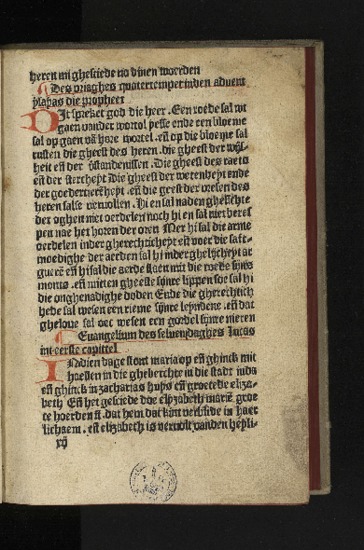 heren mi ghesciede na dinen woerden
Des vridaghes quatertemper inden advent
ysayas die propheet
Dit spreket god die heer. Een roede sal wt
gaen vander wortel yesse ende een bloeme
sal op gaen vā hare wortel. eñ op die bloeme sal
rusten die gheest des heren. die gheest der wijs
heit eñ der verstandenissen. Die gheest des raets
eñ der stercheyt Die gheest der wetenheyt ende
der goedertierēheyt. eñ die geest der vresen des
heren salse vervollen. Hi en sal na den ghesichte
der oghen niet oerdelen noch hi en sal niet beres
pen nae het horen der oren Mer hi sal die arme
oerdelen in der gherechticheyt eñ voer die saft
moedighe der aerden sal hi in der ghelijcheyt ar
guerē eñ hi sal die aerde slaen mit die roede sijns
monts. eñ mitten gheeste sijnre lippen soe sal hi
die onghenadighe doden Ende die gherechtich
hede sal wesen een rieme sijnre leynden. eñ dat
gheloue sal oec wesen een gordel sijnre nieren
Euangelium des seluen daghes Lucas
int eerste capittel
In dien dage stont maria op eñ ghinck mit
haesten in die gheberchte in die stadt iuda
eñ ghinck in zacharias huys eñ groetede eliza
beth Eñ het gesciede doe elyzabeth mariē groe
te hoerden
lichaem. eñ elizabeth is vervolt vanden heyli